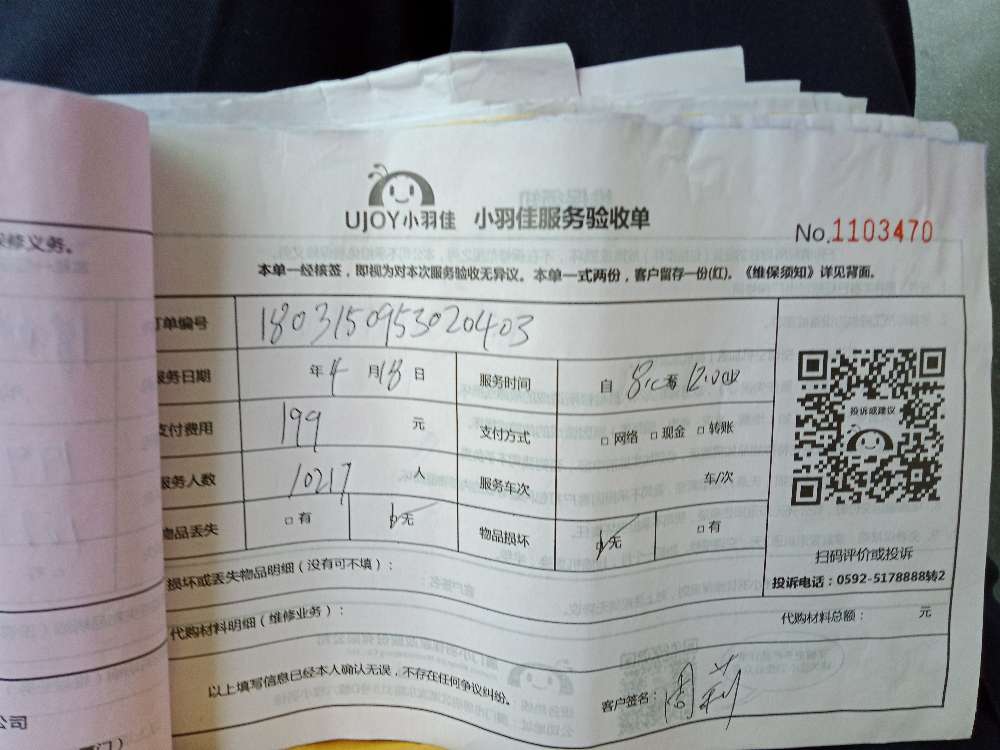 UJOY小羽佳 小羽佳服务验收单
No.1103470
本单一经核签，即视为对本次服务验收无异议。本单一式两份，客户留存一份(红)。《维保须知》详见背面。
保修义务。
订单编号 1803150953020403
服务日期 年4月18日 服务时间 自8:00至12:00
支付费用 199 元 支付方式 □网络 □现金 □转账
服务人数 10217 人 服务车次 车/次
物品丢失 □有 无 物品损坏 无 □有
投诉或建议
扫码评价或投诉
投诉电话：0592-5178888转2
损坏或丢失物品明细（没有可不填）：
代购材料明细（维修业务）： 代购材料总额： 元
以上填写信息已经本人确认无误，不存在任何争议纠纷。 客户签名：周莉
公司
门）